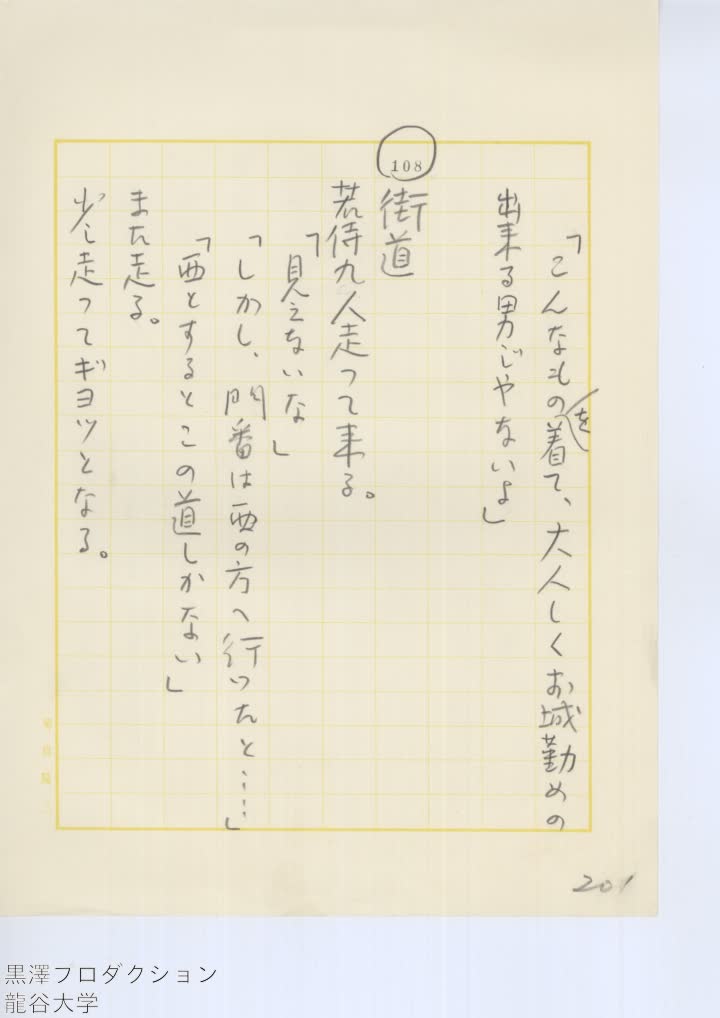 「こんなものを着て、大人しくお城勤めの
出来る男じやないよ」
108
街道
若侍九人走って来る。
「見えないな」
「しかし、門番は西の方へ行つたと……」
「西とするとこの道しかない」
また走る。
少し走ってギヨツとなる。
201
黒澤プロダクション
龍谷大学